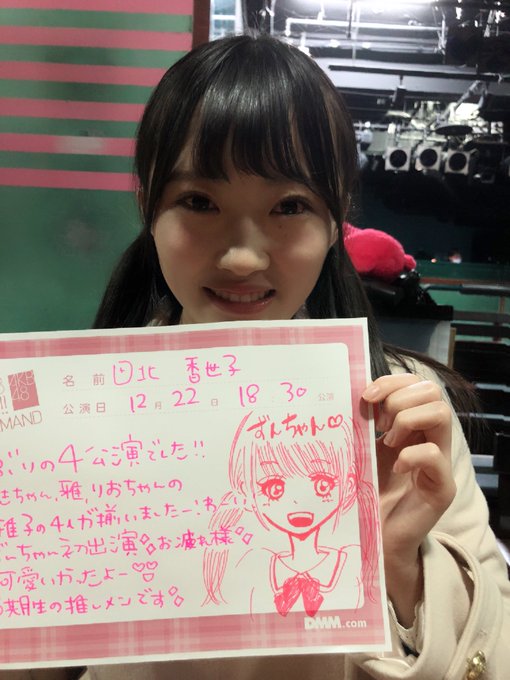 AKB
48
!!
MAND
名前 田北 香世子
公演日 12月22日 18:30 公演
ずんちゃん♡
ぶりの4公演でした!!
きちゃん、雅、りおちゃんの
雅子の4人が揃いましたー!わーい
ずんちゃん初出演お疲れ様
可愛いかったよー♡♡
期生の推しメンです
DMM.com